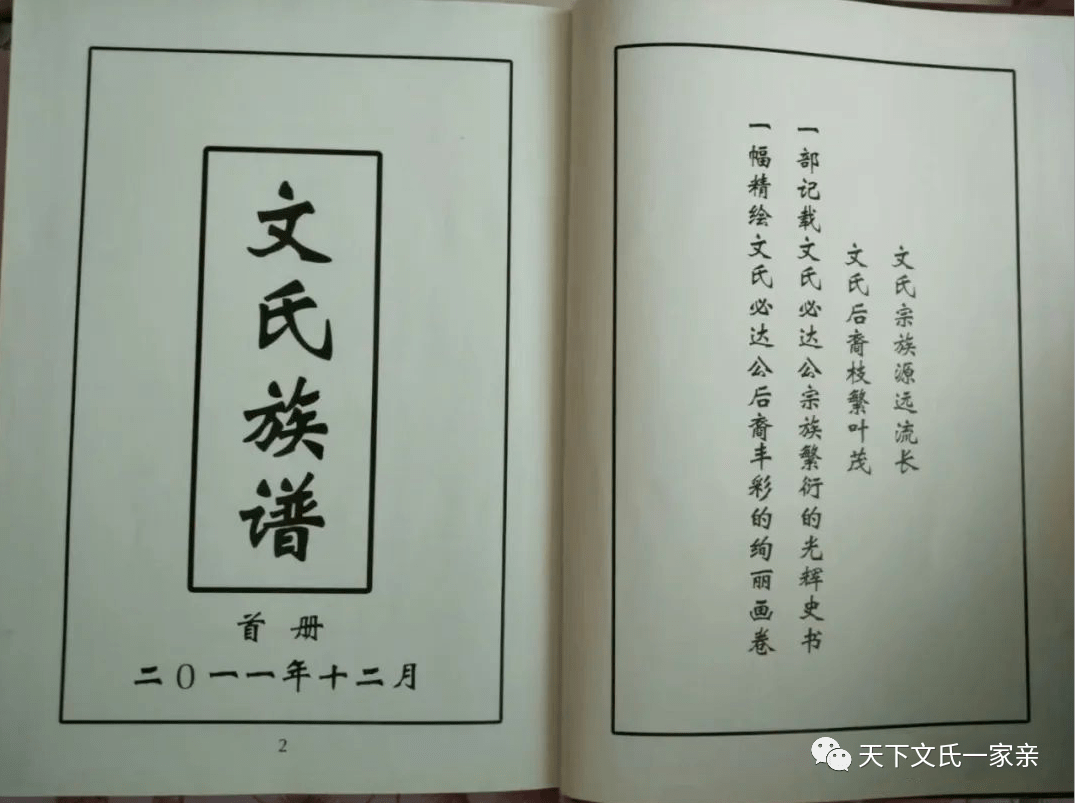 文氏族谱
首册
二〇一一年十二月
2
文氏宗族源远流长
文氏后裔枝繁叶茂
一部记载文氏必达公宗族繁衍的光辉史书
一幅精绘文氏必达公后裔丰彩的绚丽画卷
天下文氏一家亲